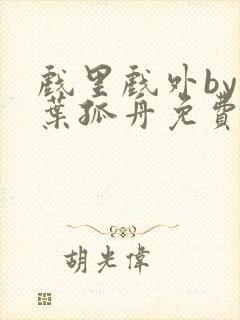 戲里戲外by
葉孤舟免費
胡光偉